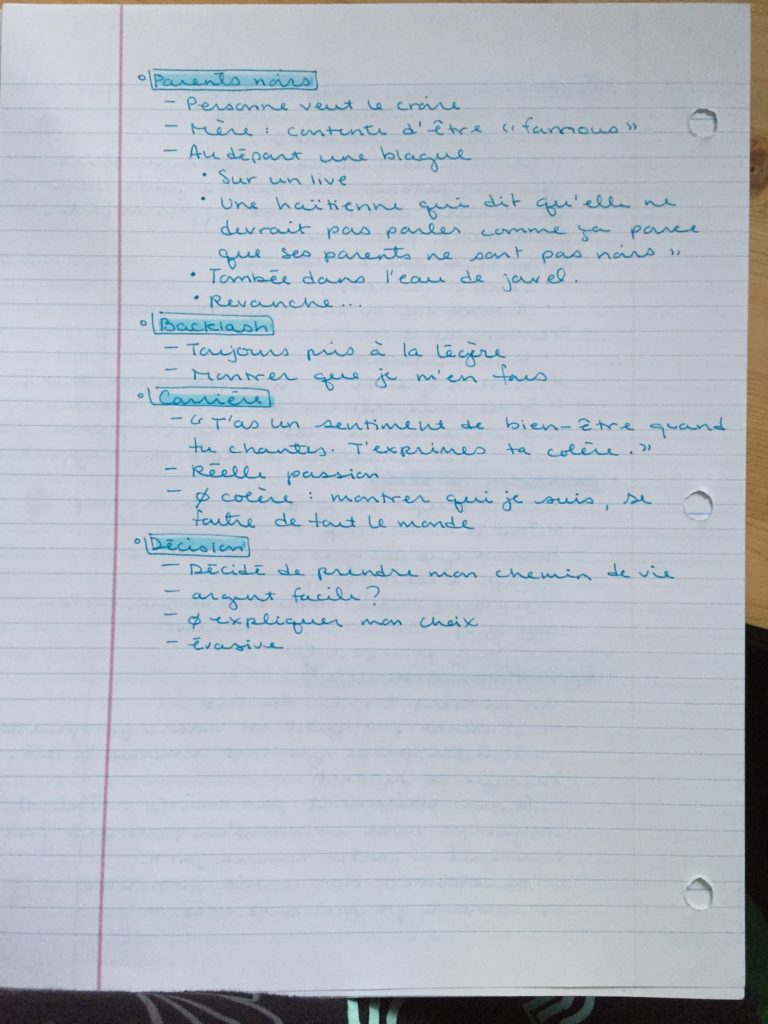 ° Parents noirs
- Personne veut le croire
- Mère : contente d'être "famous"
- Au départ une blague
• Sur un live
• Une haïtienne qui dit qu'elle ne
devrait pas parler comme ça parce
que ses parents ne sont pas noirs "
• Tombée dans l'eau de javel.
• Revanche...
° Backlash
- Toujours pris à la légère
- Montrer que je m'en fous
° Carrière
- "T'as un sentiment de bien-être quand
tu chantes. T'exprimes ta colère."
- Réelle passion
- Ø colère : montrer qui je suis, se
foutre de tout le monde
° Décision
- Décidé de prendre mon chemin de vie
- argent facile ?
- Ø expliquer mon choix
- évasive